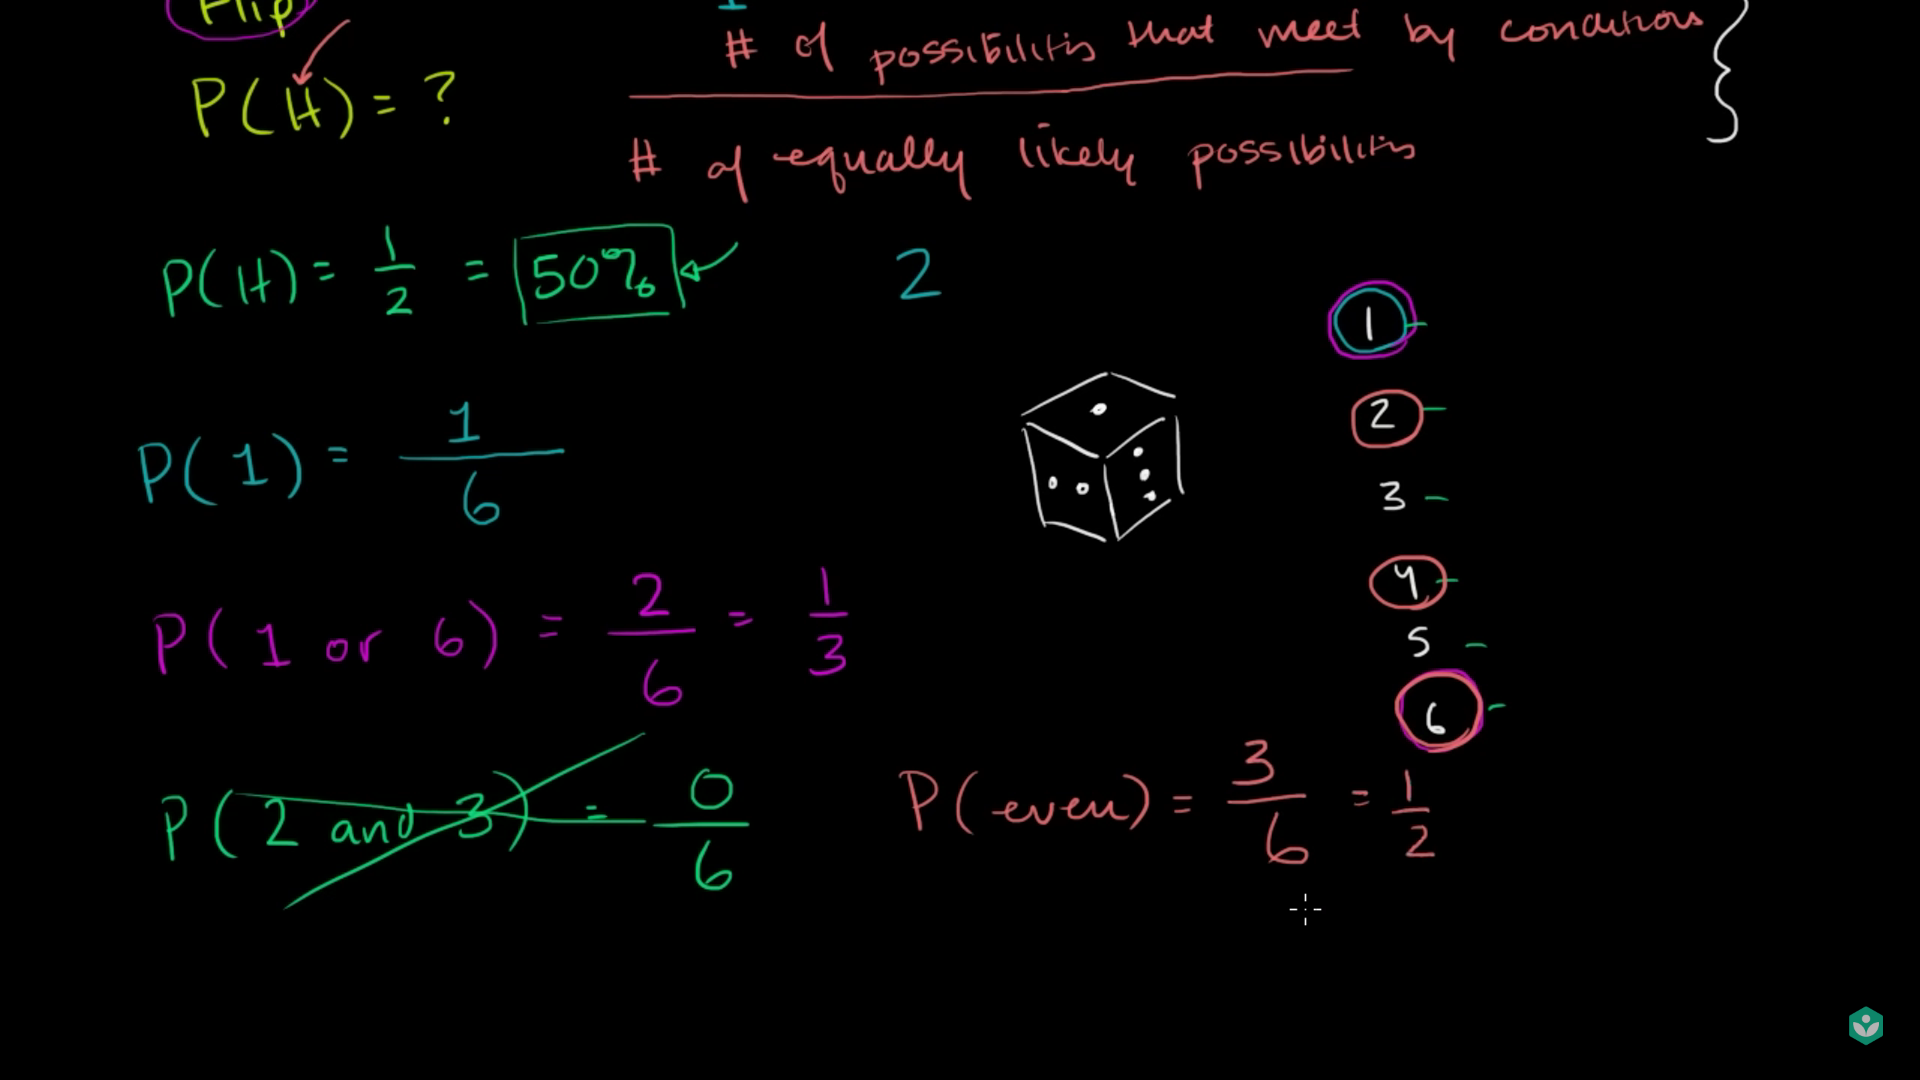 Flip
1
# of possibilities that meet by conditions
P(H) = ?
# of equally likely possibilities
P(H) = 1/2 = 50%
2
1
2
P(1) = 1/6
3
4
P(1 or 6) = 2/6 = 1/3
5
6
P(2 and 3) = 0/6
P(even) = 3/6 = 1/2